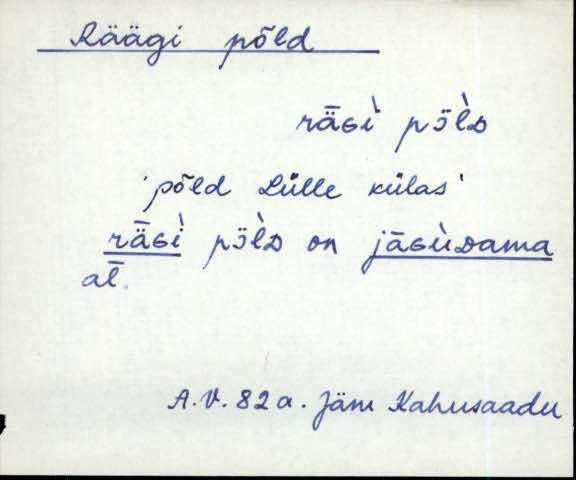 Räägi põld
rāɢi̇̀ pɔ̈l̀ᴅ
'põld Lülle külas'
rǟɢi̇̀ pɔ̈l̀ᴅ on jǟɢùᴅama
al̄.
A.V. 82 a. Jäm Kahusaadu